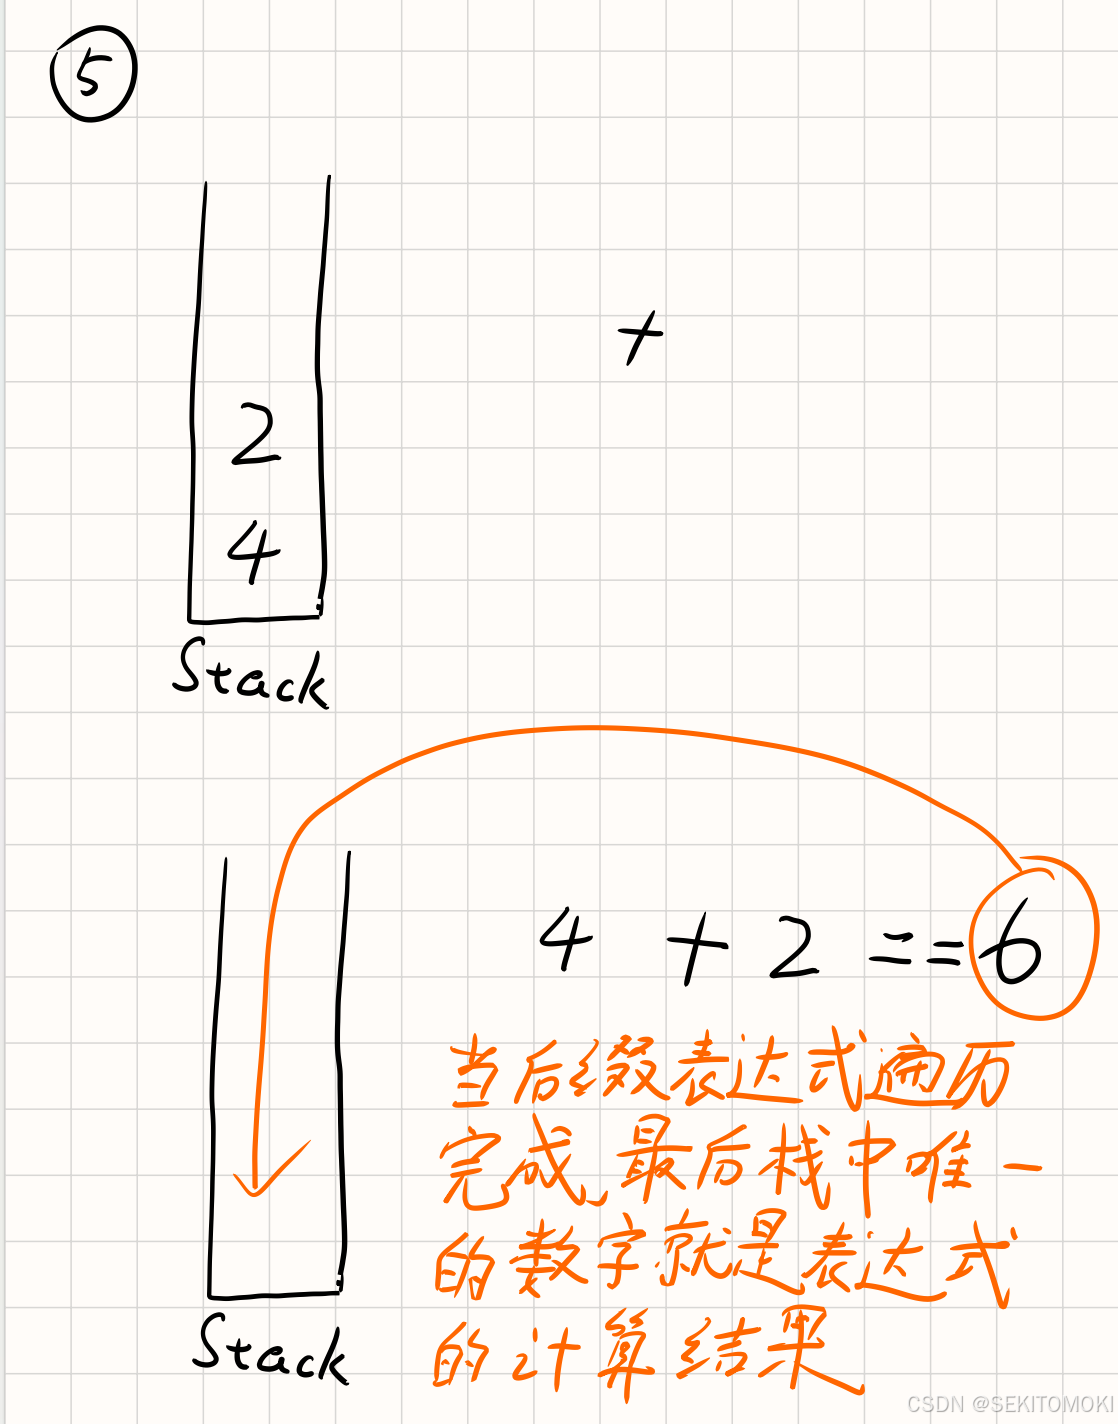 ⑤
+
2
4
Stack
4 + 2 == 6
当后缀表达式遍历
完成,最后栈中唯一
的数字就是表达式
的计算结果
Stack
CSDN @SEKITOMOKI